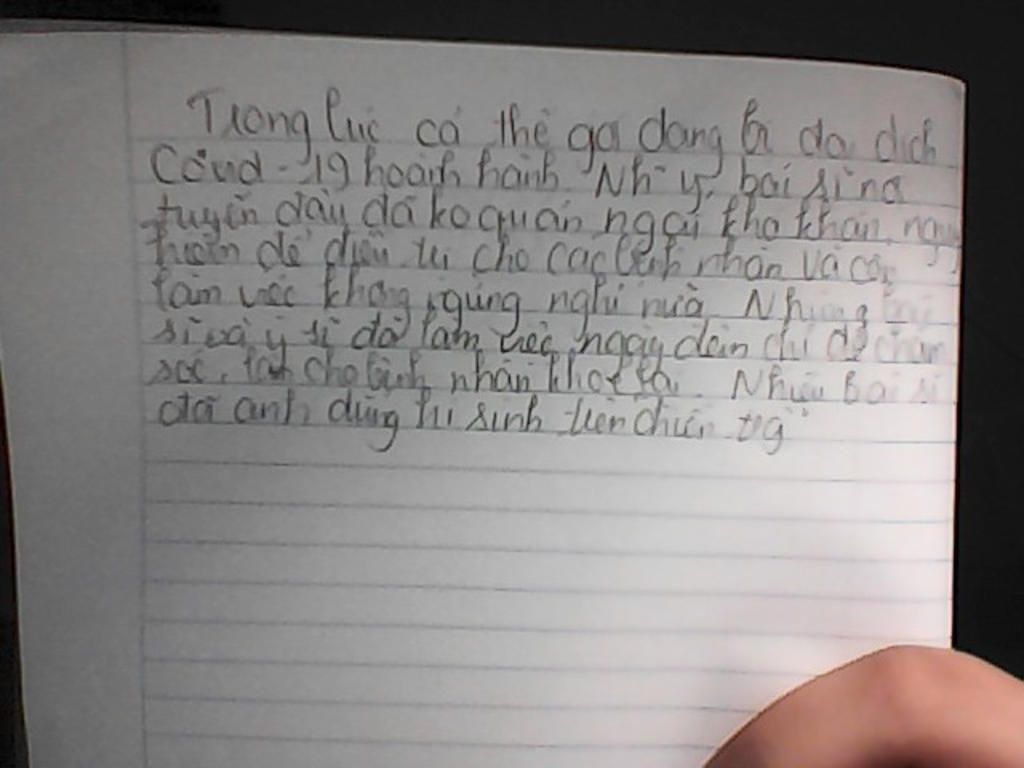 Trong lúc cả thế gơi đang bị đại dịch
Covid-19 hoành hành. Nh~ y, bái sĩ nơi
tuyến đầu đã ko quản ngại khó khăn, nguy
hiểm để điều trị cho các bệnh nhân và còn
làm việc không ngừng nghỉ nữa. Những bái
sĩ và y sĩ đã làm việc ngày đêm chỉ để chăm
sóc, cho bệnh nhân khoẻ lại. Nhiều bái sĩ
đã anh dũng hi sinh trên chiến trg